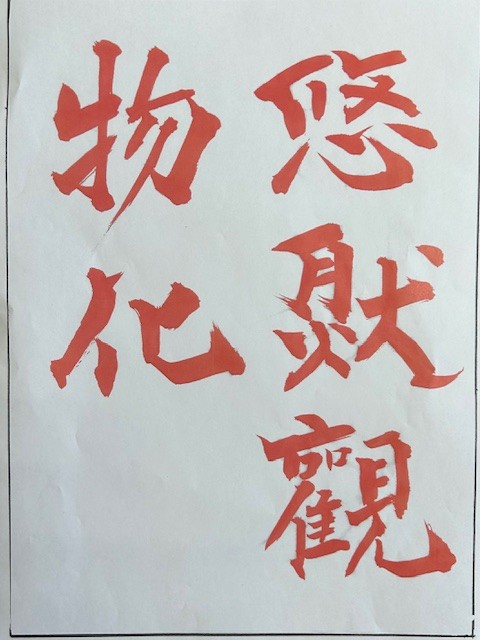 悠然觀
物化